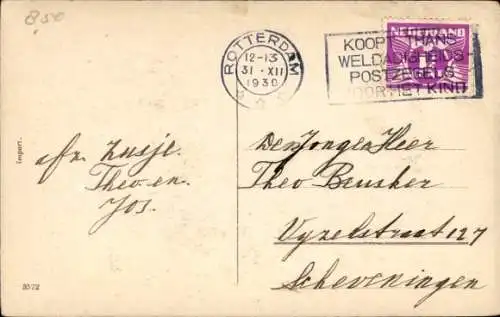 8.50
ROTTERDAM
12-13
31 · XII
1930
NEDERLAND
KOOPT THANS
WELDADIGHEIDS
POSTZEGELS
VOOR HET KIND
Import.
Afz. Zusje.
Theo en.
Jos.
Den Jongen Heer
Theo Beusker
Vyzelstraat 127
Scheveningen